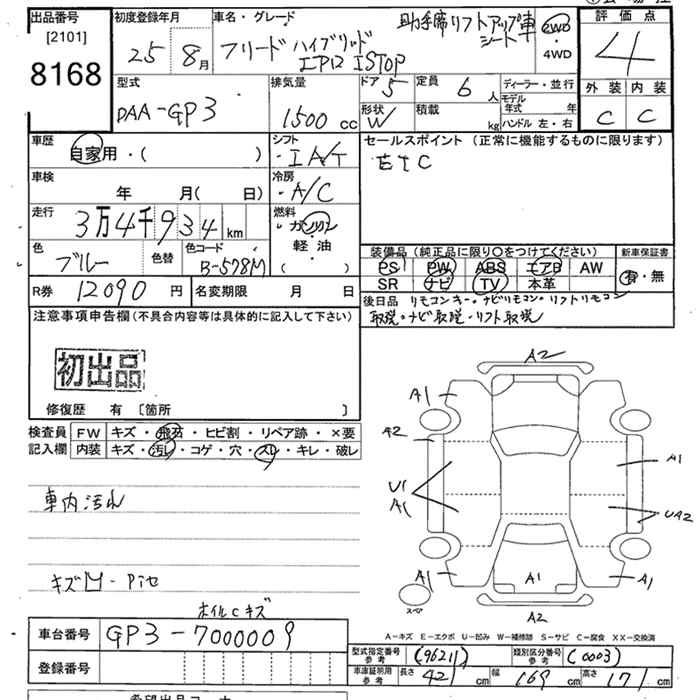 出品番号 [2101] 8168
初度登録年月 25年 8月
車名・グレード 助手席リフトアップシート車
フリード ハイブリッド
2WD・4WD
評価点 4
外装 C 内装 C
型式 DAA-GP3
排気量 1500 cc
ドア 5 定員 6 人
形状 W 積載 kg
ディーラー・並行
モデル年式 年
ハンドル 左・右
車歴 自家用・( )
シフト IAT
セールスポイント (正常に機能するものに限ります)
ETC
車検 年 月( 日)
冷房 A/C
走行 3万4千934 km
燃料 ガソリン
軽油
( )
色 ブルー 色替 色コード B-578M
装備品 (純正品に限り○をつけてください) 新車保証書
PS PW ABS エアB AW 有・無
SR ナビ TV 本革
R券 12090 円 名変期限 月 日
後日品 リモコンキー・ナビリモコン・リフトリモコン
取説・ナビ取説・リフト取説
注意事項申告欄 (不具合内容等は具体的に記入して下さい)
初出品
修復歴 有 〔箇所 〕
検査員 FW キズ・飛石・ヒビ割・リペア跡・×要
記入欄 内装 キズ・汚れ・コゲ・穴・スレ・キレ・破レ
車内汚れ
A2
A1
A2
A1
U1
A1
UA2
A1 A1 A1
スペア
A2
ホイルCキズ
A-キズ E-エクボ U-凹み W-補修跡 S-サビ C-腐食 XX-交換済
車台番号 GP3-7000009
型式指定番号 参考 (96211) 類別区分番号 参考 (0003)
登録番号
車庫証明用 参考 長さ 421 cm 幅 169 cm 高さ 171 cm